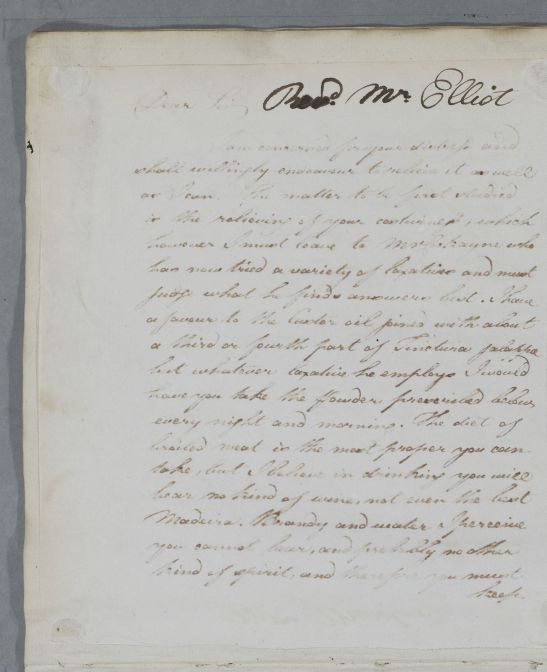 Revd. Mr. Elliot
Dear Sir
I am concerned for your distress and
shall willingly endeavour to relieve it as well
as I can. The matter to be first studied
is the relieving of your costiveness, which
however I must leave to Mr who
has now tried a variety of laxatives and must
judge what he finds answers best. I have
a favour to the Castor oil joined with about
a third or fourth part of Tinctura Jalappæ
but whatever laxative he employs I would
have you take the Powder prescribed below
every night and morning. The diet of
broiled meat is the most proper you can
take, but I believe in drinking you will
bear no kind of wine, not even the best
Madeira. Brandy and water I perceive
you cannot bear, and probably no other
kind of spirit, and therefore you must
keep